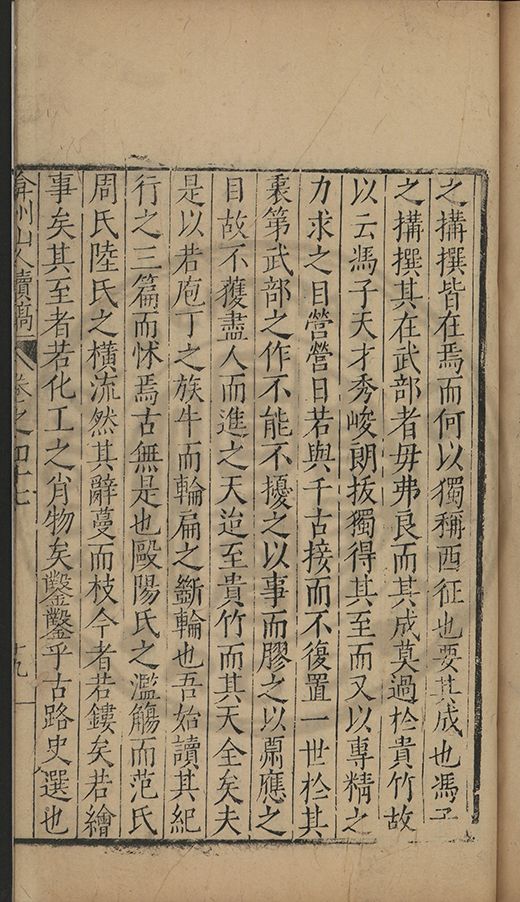 之搆撰皆在焉而何以獨稱西征也要其成也馮子
之搆撰其在武部者毋弗良而其成莫過於貴竹故
以云馮子天才秀峻朗拔獨得其至而又以專精之
力求之目營營日若與千古接而不復置一世於其
衷第武部之作不能不擾之以事而膠之以應之
目故不獲盡人而進之天迨至貴竹而其天全矣夫
是以若庖丁之族牛而輪扁之斵輪也吾始讀其紀
行之三篇而怵焉古無是也歐陽氏之濫觴而范氏
周氏陸氏之橫流然其辭蔓而枝今者若鏤矣若繪
事矣其至者若化工之肖物矣鑿鑿乎古路史選也
弇州山人續稿 卷之四十七 十九